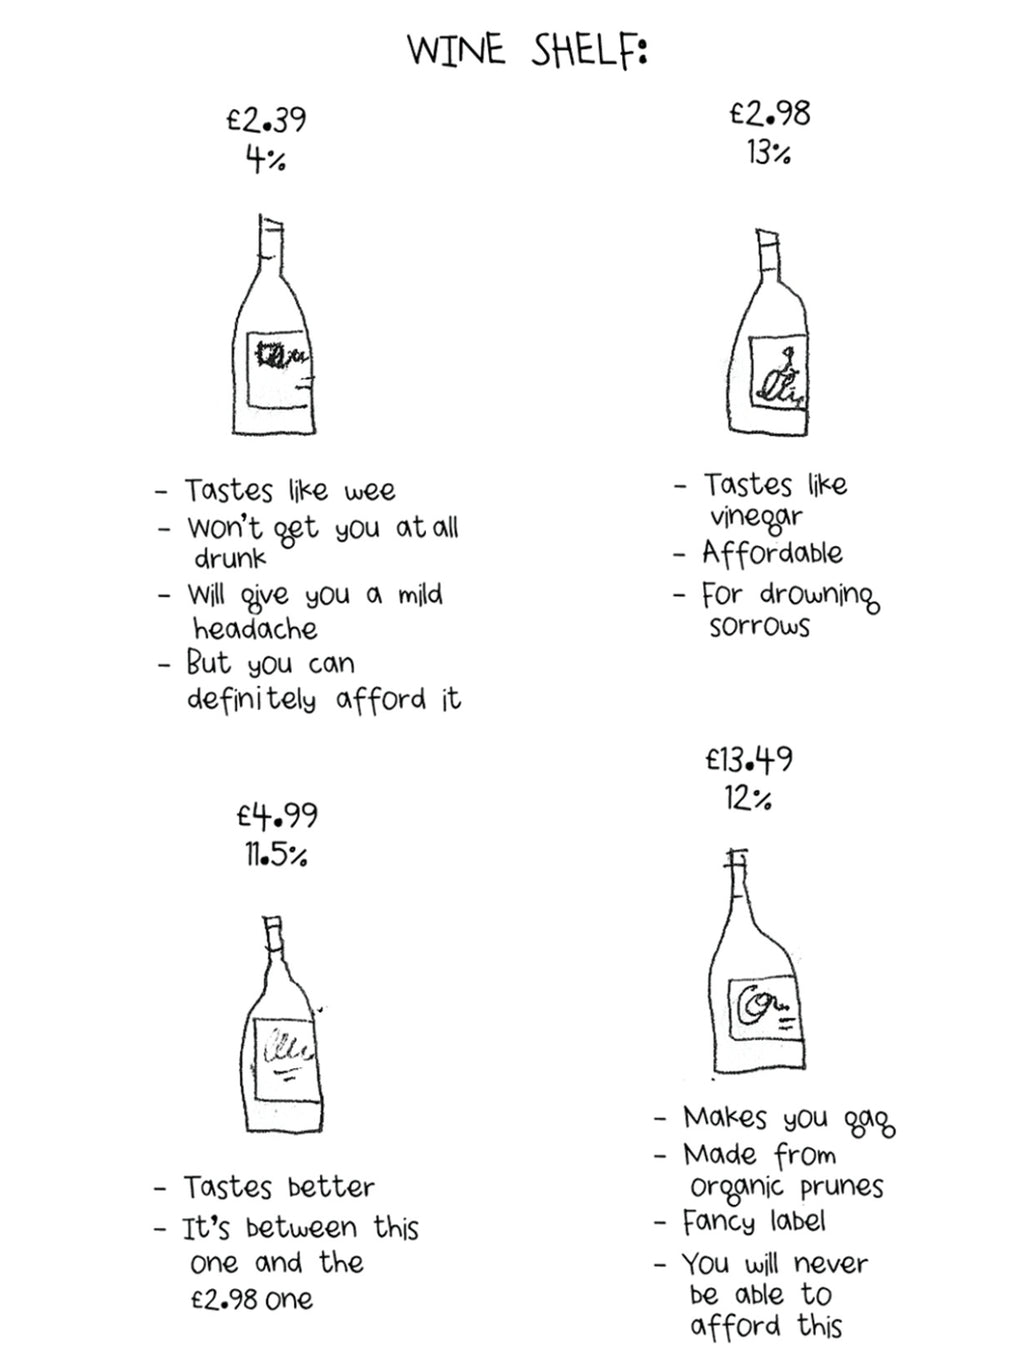 WINE SHELF:
£2.39
4%
- Tastes like wee
- Won't get you at all
drunk
- Will give you a mild
headache
- But you can
definitely afford it
£2.98
13%
- Tastes like
vinegar
- Affordable
- For drowning
sorrows
£4.99
11.5%
- Tastes better
- It's between this
one and the
£2.98 one
£13.49
12%
- Makes you gag
- Made from
organic prunes
- Fancy label
- You will never
be able to
afford this